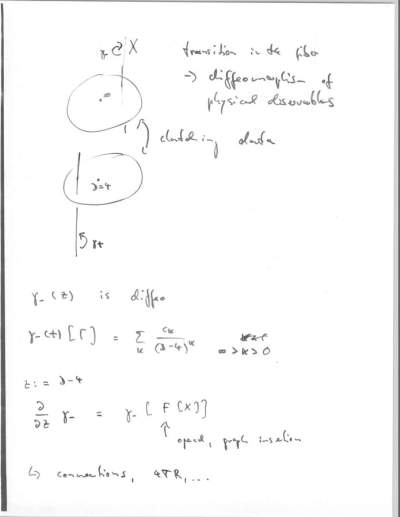 γ- X
transition in the fiber
→ diffeomorphism of
physical observables
∞
clutching data
∂=4
γ+
γ-(z) is diffeo
γ-(z) [Γ] = Σ_k c_k/(∂-4)^k
∞ > k > 0
z := ∂-4
∂/∂z γ- = γ- [F(X)]
↑
operad, graph insertion
↳ connections, 4TR, ...